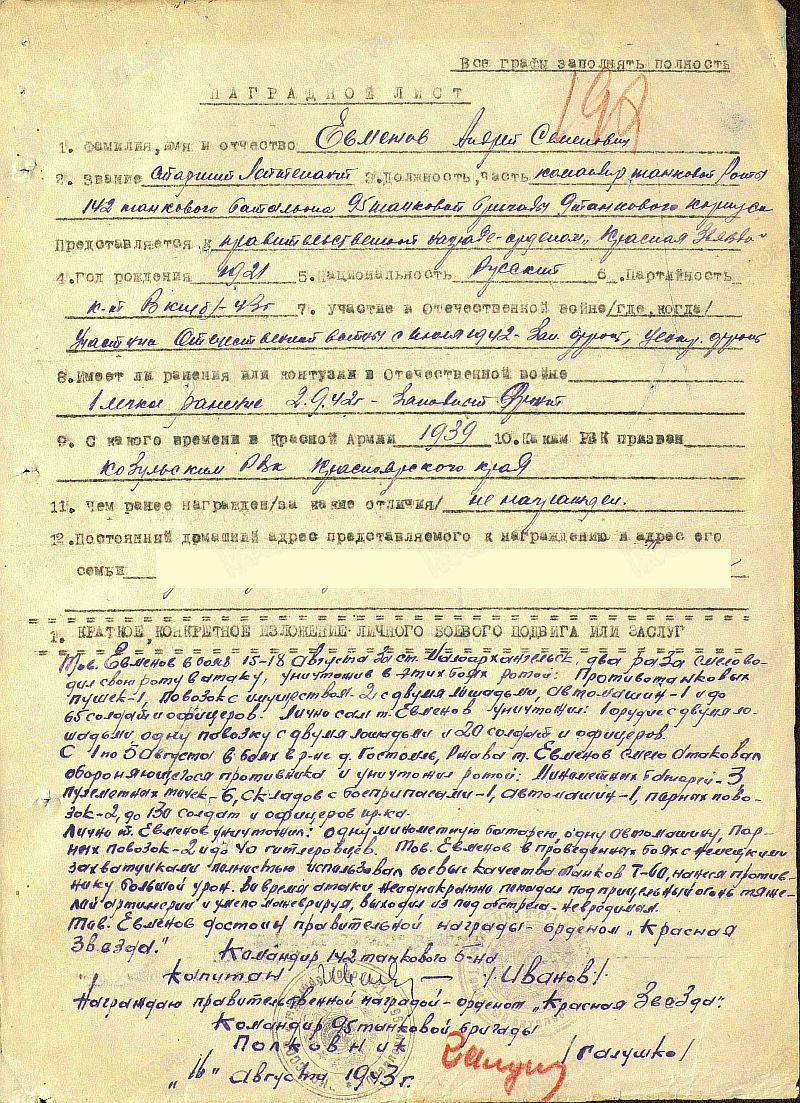 Все графы заполнять полность
198
НАГРАДНОЙ ЛИСТ
1. Фамилия, имя и отчество Евменов Андрей Семенович
2. Звание Старший Лейтенант 3. Должность, часть командир танковой Роты
142 танкового батальона 95 танковой бригады 9 танкового корпуса
Представляется к правительственной награде-орденом „Красная Звезда"
4. Год рождения 1921 5. Национальность Русский 6. Партийность
к-т ВКП(б)-43г 7. участие в Отечественной войне/где, когда/
Участник Отечественной войны с июля 1942 - Зап. фронт, Центр. фронт
8. Имеет ли ранения или контузии в Отечественной войне
1 легкое ранение 2.9.42г - Западный Фронт
9. С какого времени в Красной Армии 1939 10. Каким РВК призван
Козульским РВК Красноярского края
11. Чем ранее награжден/за какие отличия/ не награжден.
12. Постоянний домашний адрес представляемого к награждению и адрес его
семьи
1. КРАТКОЕ, КОНКРЕТНОЕ ИЗЛОЖЕНИЕ ЛИЧНОГО БОЕВОГО ПОДВИГА ИЛИ ЗАСЛУГ
Тов. Евменов в боях 15-18 августа за ст. Малоархангельск, два раза смело во-
дил свою роту в атаку, уничтожив в этих боях ротой: Противотанковых
пушек-1, Повозок с имуществом-2 с двумя лошадьми, автомашин-1 и до
65 солдат и офицеров. Лично сам т. Евменов уничтожил: 1 орудие с двумя ло-
шадьми, одну повозку с двумя лошадьми и 20 солдат и офицеров.
С 1 по 5 августа в боях в р-не д. Гостомль, Ржава т. Евменов смело атаковал
обороняющегося противника и уничтожил ротой: Минометных батарей-3,
пулеметных точек-6, складов с боеприпасами-1, автомашин-1, парных пово-
зок-2, до 130 солдат и офицеров пр-ка.
Лично т. Евменов уничтожил: одну минометную батарею, одну автомашину, пар-
ных повозок-2 и до 40 гитлеровцев. Тов. Евменов в проведенных боях с немецкими
захватчиками полностью использовал боевые качества танков Т-60, нанеся против-
нику большой урон. Во время атаки неоднократно попадал под прицельный огонь тяже-
лой артилерии и умело маневрируя, выходил из под обстрела - невредимым.
Тов. Евменов достоин правительной награды - орденом „Красная
Звезда."
Командир 142 танкового б-на
Капитан /Иванов/
Награждаю правительственной наградой - орденом „Красная Звезда".
Командир 95 танковой бригады
Полковник Галушко /Галушко/
„16" августа 1943 г.